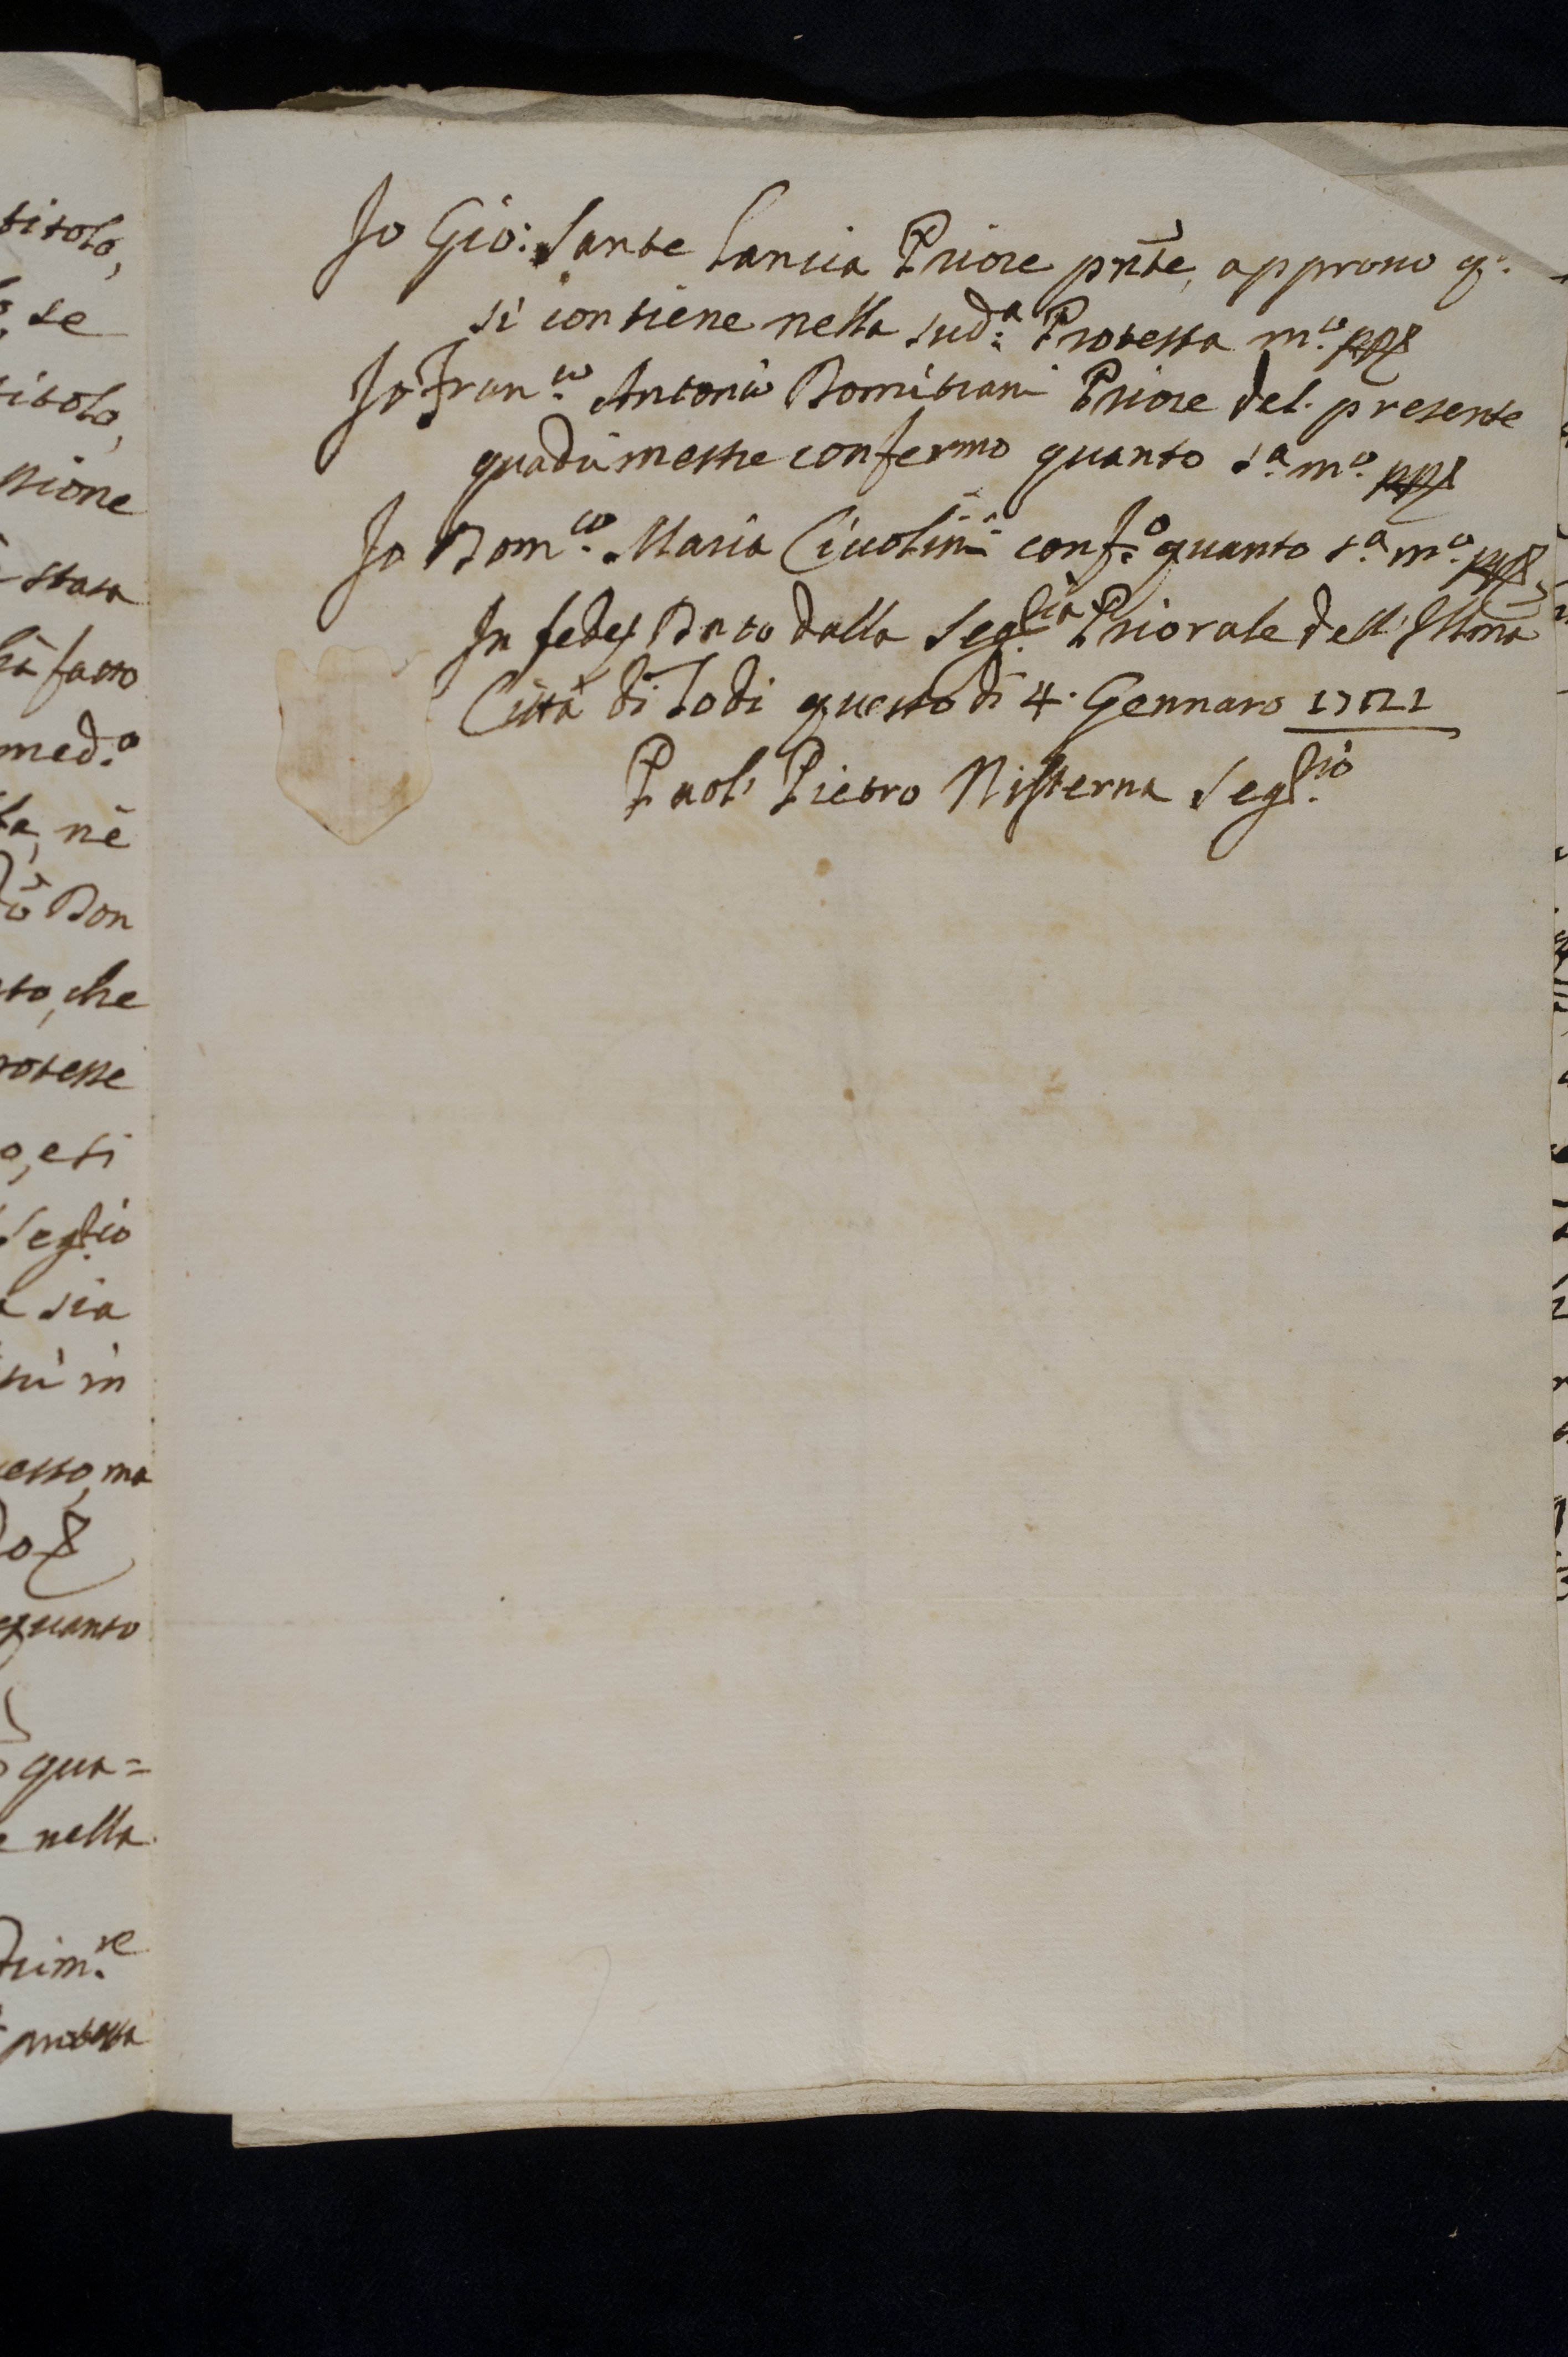 titolo,
se
titolo,
ssione
stata
hà fatto
med.o
ta, nè
Don
to, che
rotesse
o, e ti
Seg.rio
a sia
sù in
esso, ma
quanto
qua=
e nella
drim.re
protesta
Io Gio: Sante Lancia Priore pn̄te, approuo q.o
si contiene nella sud.a Protesta m.o pp̄a
Io Fran.co Antonio Domitiani Priore del presente
quadrimestre confermo quanto s.a m.o pp̄a
Io Dom.co Maria Ciuolini conf.o quanto s.a m.o pp̄a
In fede Dato dalla Seg.ria Priorale dell' Ill̄ma
Città di Todi questo dì 4. Gennaro 1721
Paol' Pietro Seg.rio